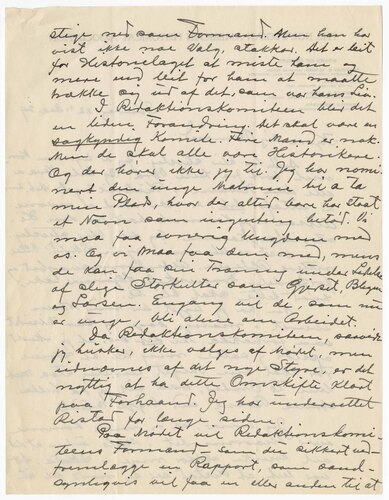 stige ned som Formand. Men han har
vist ikke noe Valg, stakkar. Det er leit
for Historielaget at miste ham og
mere end leit for ham at maatte
trække sig ud af det, som var hans Liv.
I Redaktionskomiteen blir det
en liden Forandring. Det skal være en
sagkyndig Komite. Fire Mand er nok.
Men de skal alle være Historikere.
Og der hører ikke jeg til. Jeg har nomi-
nert den unge Malmin til å ta
min Plads, hvor der altid bare har staat
et Navn som ingenting betød. Vi
maa faa energisk Ungdom med
os. Og vi maa faa dem med, mens
de kan faa sin Træning under Ledelse
af slige Storkutter som Gjerset, Blegen
og Larsen. Engang vil de, som nu
er unge bli alene om Arbeidet.
Da Redaktionskomiteen, saavidt
jeg husker, ikke vælges af Mødet, men
udnævnes af det nye Styre, er det
nyttig at ha dette Omskifte klart
paa Forhaand. Jeg har underrettet
Ristad for længe siden.
Paa Mødet vil Redaktionskomi-
teens Formand – som du sikkert ved –
fremlægge en Rapport, som sand-
synligvis vil faa en eller anden til at